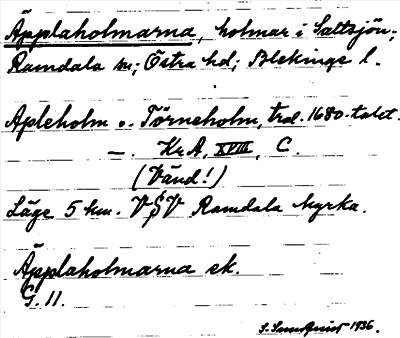 Äpplaholmarna, holmar i Saltsjön;
Ramdala sn; Östra hd; Blekinge l.
Apleholm o. Törneholm, trol. 1680-talet.
—. KrA, XVIII, C.
(Vänd!)
Läge 5 km. VSV Ramdala kyrka.
Äpplaholmarna ek.
G. 11.
1936.